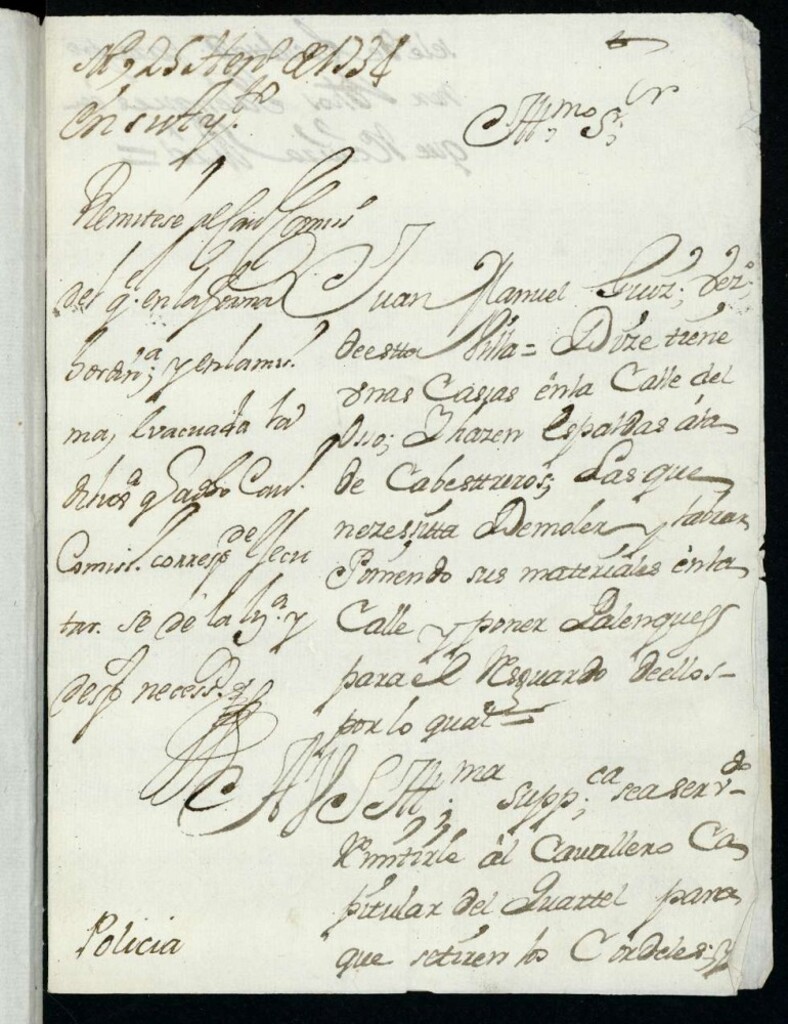 M.d 25 Sep.re de 1734
En su Ay.to
Remitese al Cav.o Comis.o
del q.l en la forma
hordin.a y en la mis.
ma, evacuada la
dilix.a
Comis.o corresp.te de
tar. se dé la liz.a y
desp.o necess.o
Policia
Ill.mo S.or
Juan Manuel Cruz; vez.o
de estta Villa = Dize tiene
unas Casas en la Calle del
Osso; I hazen espaldas a la
de Cabesttreros; Las que
nezesitta Demoler y labrar
Poniendo sus matteriales en la
Calle y poner Palenques
para el Resguardo de ellos
por lo qual =
A V S Ill.ma supp.ca sea serv.do
Remitirle al Cavallero Ca
pitular del Quartel para
que se tiren los Cordeles; y